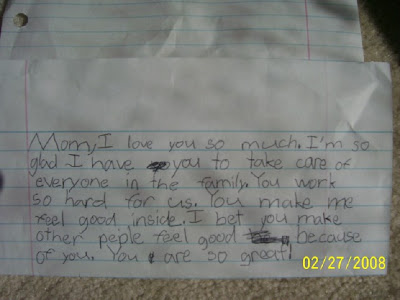 Mom, I love you so much. I'm so
glad I have you to take care of
everyone in the family. You work
so hard for us. You make me
feel good inside. I bet you make
other peple feel good, because
of you. You are so great!
02/27/2008